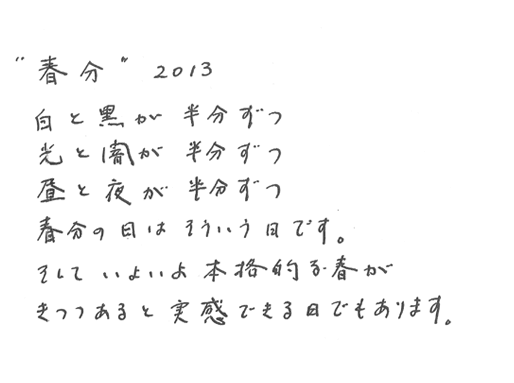 "春分" 2013
白と黒が 半分ずつ
光と闇が 半分ずつ
昼と夜が 半分ずつ
春分の日は そういう日です。
そして いよいよ 本格的な春が
きつつあると 実感できる日でもあります。